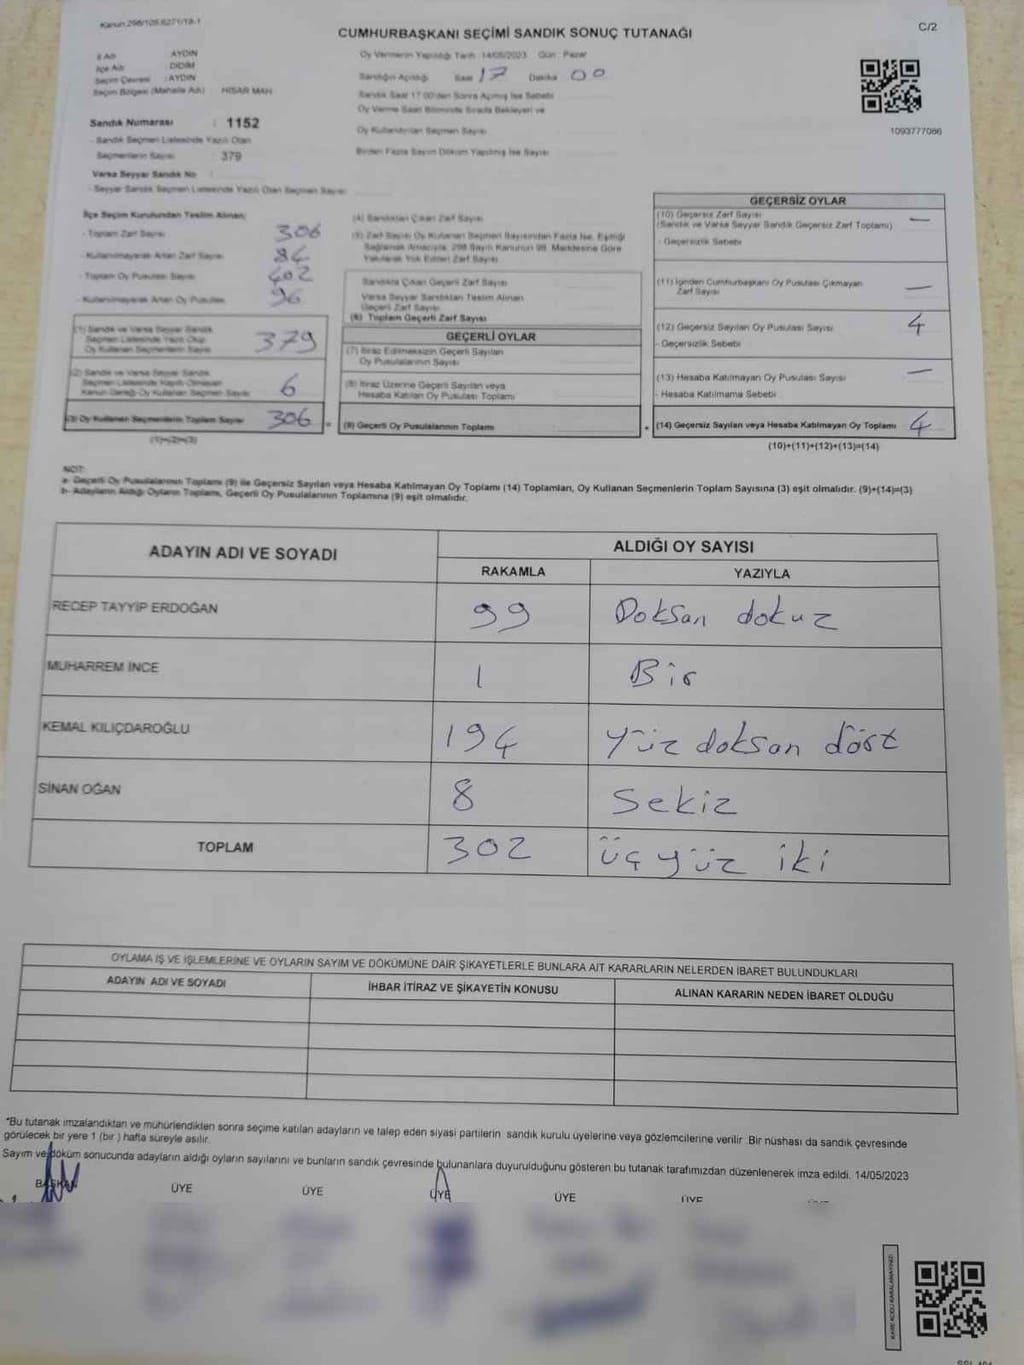 Kanun 298/105.6271/19-1
C/2
CUMHURBAŞKANI SEÇİMİ SANDIK SONUÇ TUTANAĞI
İl Adı : AYDIN
İlçe Adı : DİDİM
Seçim Çevresi : AYDIN
Seçim Bölgesi (Mahalle Adı) HİSAR MAH
Oy Vermenin Yapıldığı Tarih 14/05/2023 Gün : Pazar
Sandığın Açıldığı Saat 17 Dakika 00
Sandık Saat 17.00'den Sonra Açılmış İse Sebebi
Oy Verme Saati Bitiminde Sırada Bekleyen ve
Oy Kullandırılan Seçmen Sayısı
Birden Fazla Sayım Döküm Yapılmış İse Sayısı
1093777086
Sandık Numarası : 1152
- Sandık Seçmen Listesinde Yazılı Olan
Seçmenlerin Sayısı : 379
Varsa Seyyar Sandık No
- Seyyar Sandık Seçmen Listesinde Yazılı Olan Seçmen Sayısı
İlçe Seçim Kurulundan Teslim Alınan;
- Toplam Zarf Sayısı 306
- Kullanılmayarak Artan Zarf Sayısı 84
- Toplam Oy Pusulası Sayısı 402
- Kullanılmayarak Artan Oy Pusulası 96
(1) Sandık ve Varsa Seyyar Sandık
Seçmen Listesinde Yazılı Olup
Oy Kullanan Seçmenlerin Sayısı 379
(2) Sandık ve Varsa Seyyar Sandık
Seçmen Listesinde Kayıtlı Olmayan
Kanun Gereği Oy Kullanan Seçmen Sayısı 6
(3) Oy Kullanan Seçmenlerin Toplam Sayısı 306 =
(1)+(2)=(3)
(4) Sandıktan Çıkan Zarf Sayısı
(5) Zarf Sayısı Oy Kullanan Seçmen Sayısından Fazla İse, Eşitliği
Sağlamak Amacıyla, 298 Sayılı Kanunun 98. Maddesine Göre
Yakılarak Yok Edilen Zarf Sayısı
Sandıkta Çıkan Geçerli Zarf Sayısı
Varsa Seyyar Sandıktan Teslim Alınan
Geçerli Zarf Sayısı
(6) Toplam Geçerli Zarf Sayısı
GEÇERLİ OYLAR
(7) İtiraz Edilmeksizin Geçerli Sayılan
Oy Pusulalarının Sayısı
(8) İtiraz Üzerine Geçerli Sayılan veya
Hesaba Katılan Oy Pusulası Toplamı
(9) Geçerli Oy Pusulalarının Toplamı +
GEÇERSİZ OYLAR
(10) Geçersiz Zarf Sayısı —
(Sandık ve Varsa Seyyar Sandık Geçersiz Zarf Toplamı)
- Geçersizlik Sebebi
(11) İçinden Cumhurbaşkanı Oy Pusulası Çıkmayan
Zarf Sayısı —
(12) Geçersiz Sayılan Oy Pusulası Sayısı 4
- Geçersizlik Sebebi
(13) Hesaba Katılmayan Oy Pusulası Sayısı —
- Hesaba Katılmama Sebebi
(14) Geçersiz Sayılan veya Hesaba Katılmayan Oy Toplamı 4
(10)+(11)+(12)+(13)=(14)
NOT:
a- Geçerli Oy Pusulalarının Toplamı (9) ile Geçersiz Sayılan veya Hesaba Katılmayan Oy Toplamı (14) Toplamları, Oy Kullanan Seçmenlerin Toplam Sayısına (3) eşit olmalıdır. (9)+(14)=(3)
b- Adayların Aldığı Oyların Toplamı, Geçerli Oy Pusulalarının Toplamına (9) eşit olmalıdır.
ADAYIN ADI VE SOYADI ALDIĞI OY SAYISI
RAKAMLA YAZIYLA
RECEP TAYYİP ERDOĞAN 99 Doksan dokuz
MUHARREM İNCE 1 Bir
KEMAL KILIÇDAROĞLU 194 Yüz doksan dört
SİNAN OĞAN 8 Sekiz
TOPLAM 302 üç yüz iki
OYLAMA İŞ VE İŞLEMLERİNE VE OYLARIN SAYIM VE DÖKÜMÜNE DAİR ŞİKAYETLERLE BUNLARA AİT KARARLARIN NELERDEN İBARET BULUNDUKLARI
ADAYIN ADI VE SOYADI İHBAR İTİRAZ VE ŞİKAYETİN KONUSU ALINAN KARARIN NEDEN İBARET OLDUĞU
*Bu tutanak imzalandıktan ve mühürlendikten sonra seçime katılan adayların ve talep eden siyasi partilerin sandık kurulu üyelerine veya gözlemcilerine verilir. Bir nüshası da sandık çevresinde
görülecek bir yere 1 (bir ) hafta süreyle asılır.
Sayım ve döküm sonucunda adayların aldığı oyların sayılarını ve bunların sandık çevresinde bulunanlara duyurulduğunu gösteren bu tutanak tarafımızdan düzenlenerek imza edildi. 14/05/2023
BAŞKAN ÜYE ÜYE ÜYE ÜYE ÜYE ÜYE
KARE KODU KARALAMAYINIZ!